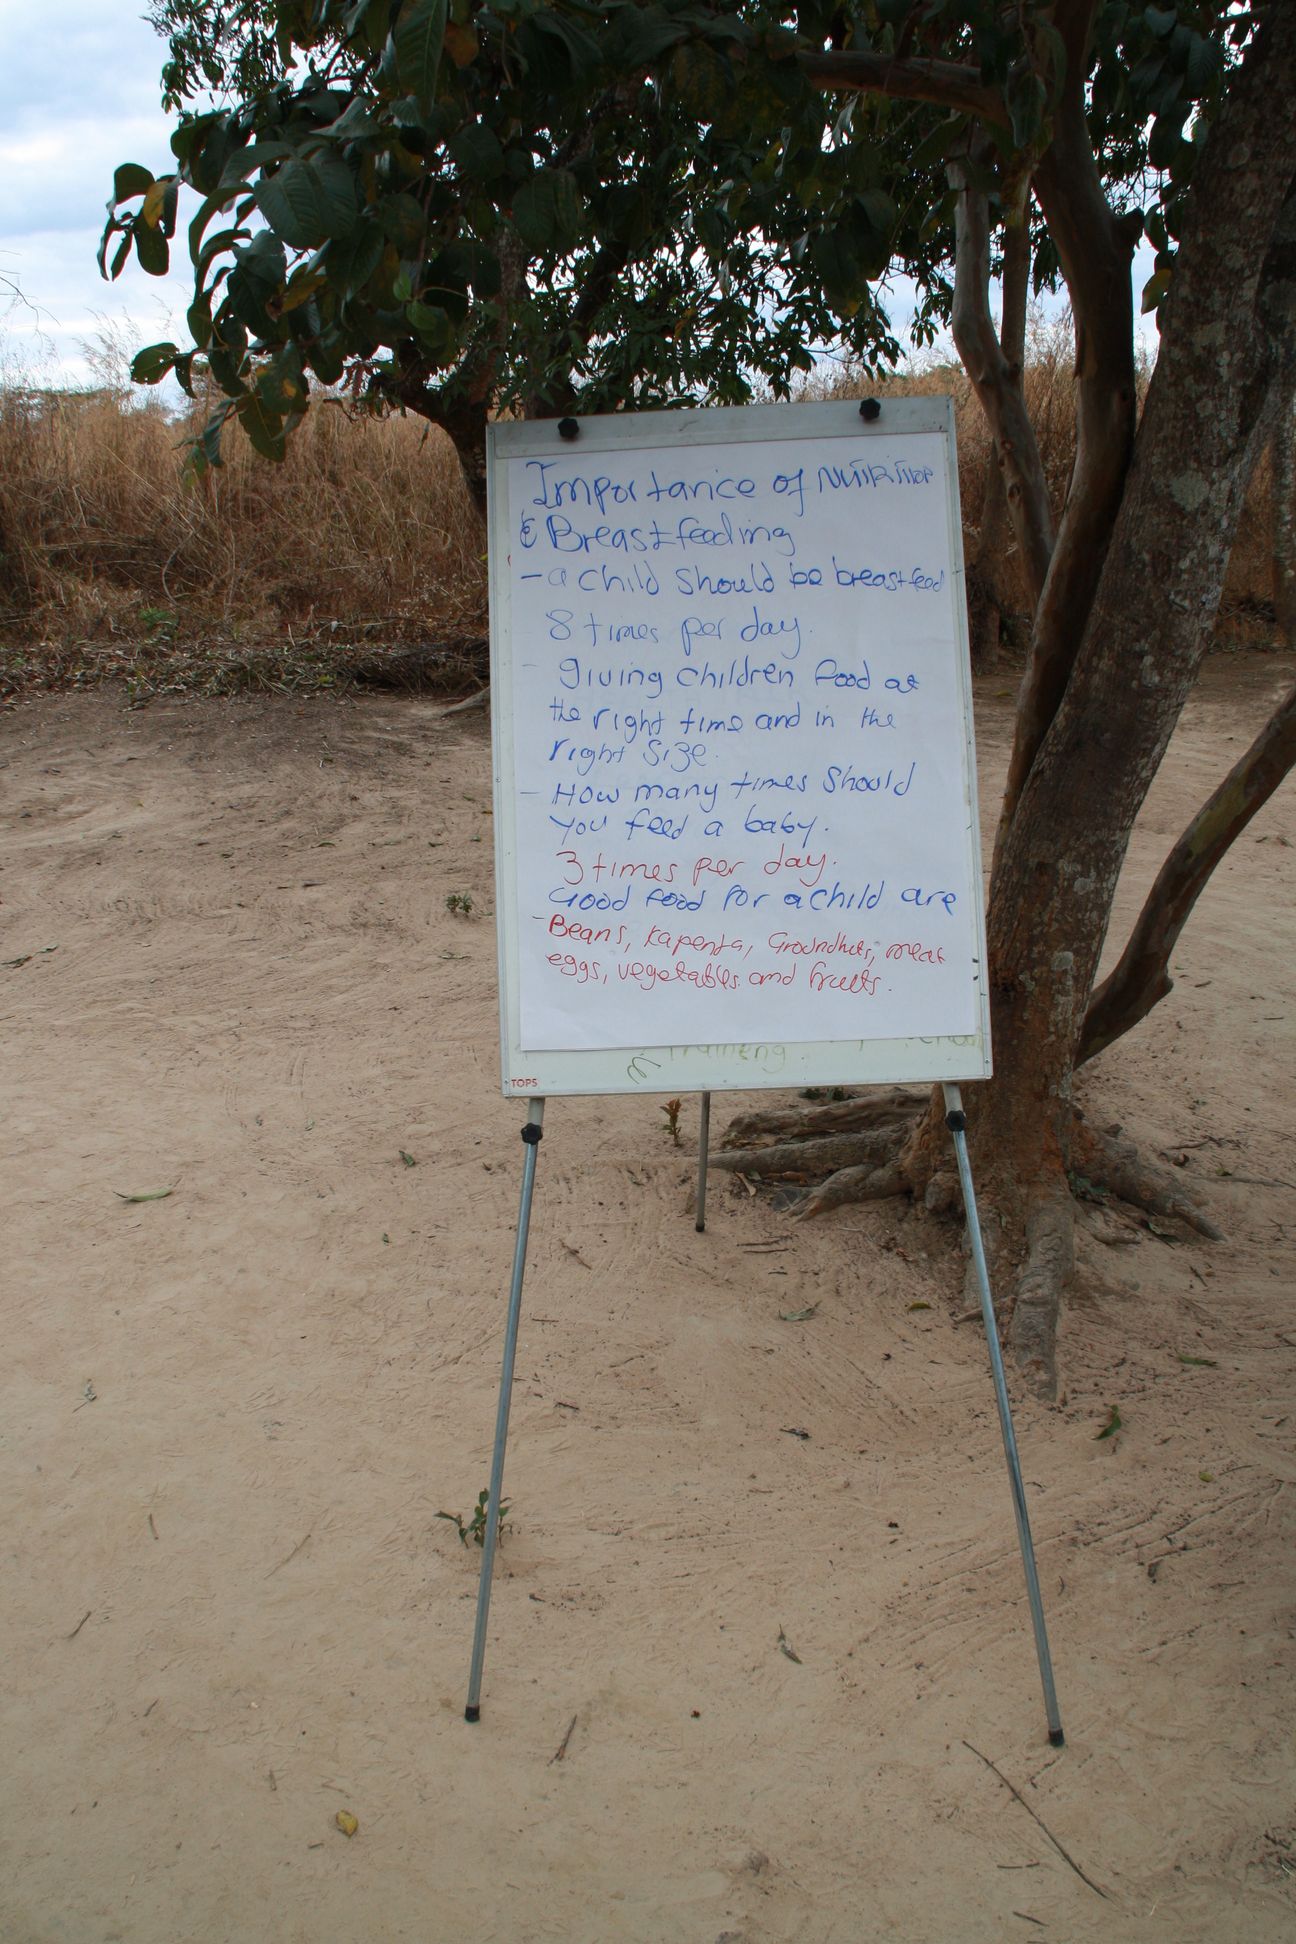 Importance of Nutrition
& Breastfeeding
- a child should be breastfeed
8 times per day.
- giving children food at
the right time and in the
right size.
- How many times should
you feed a baby.
3 times per day.
Good food for a child are
- Beans, kapenta, Groundnuts, meat
eggs, vegetables and fruits.
Training
TOPS